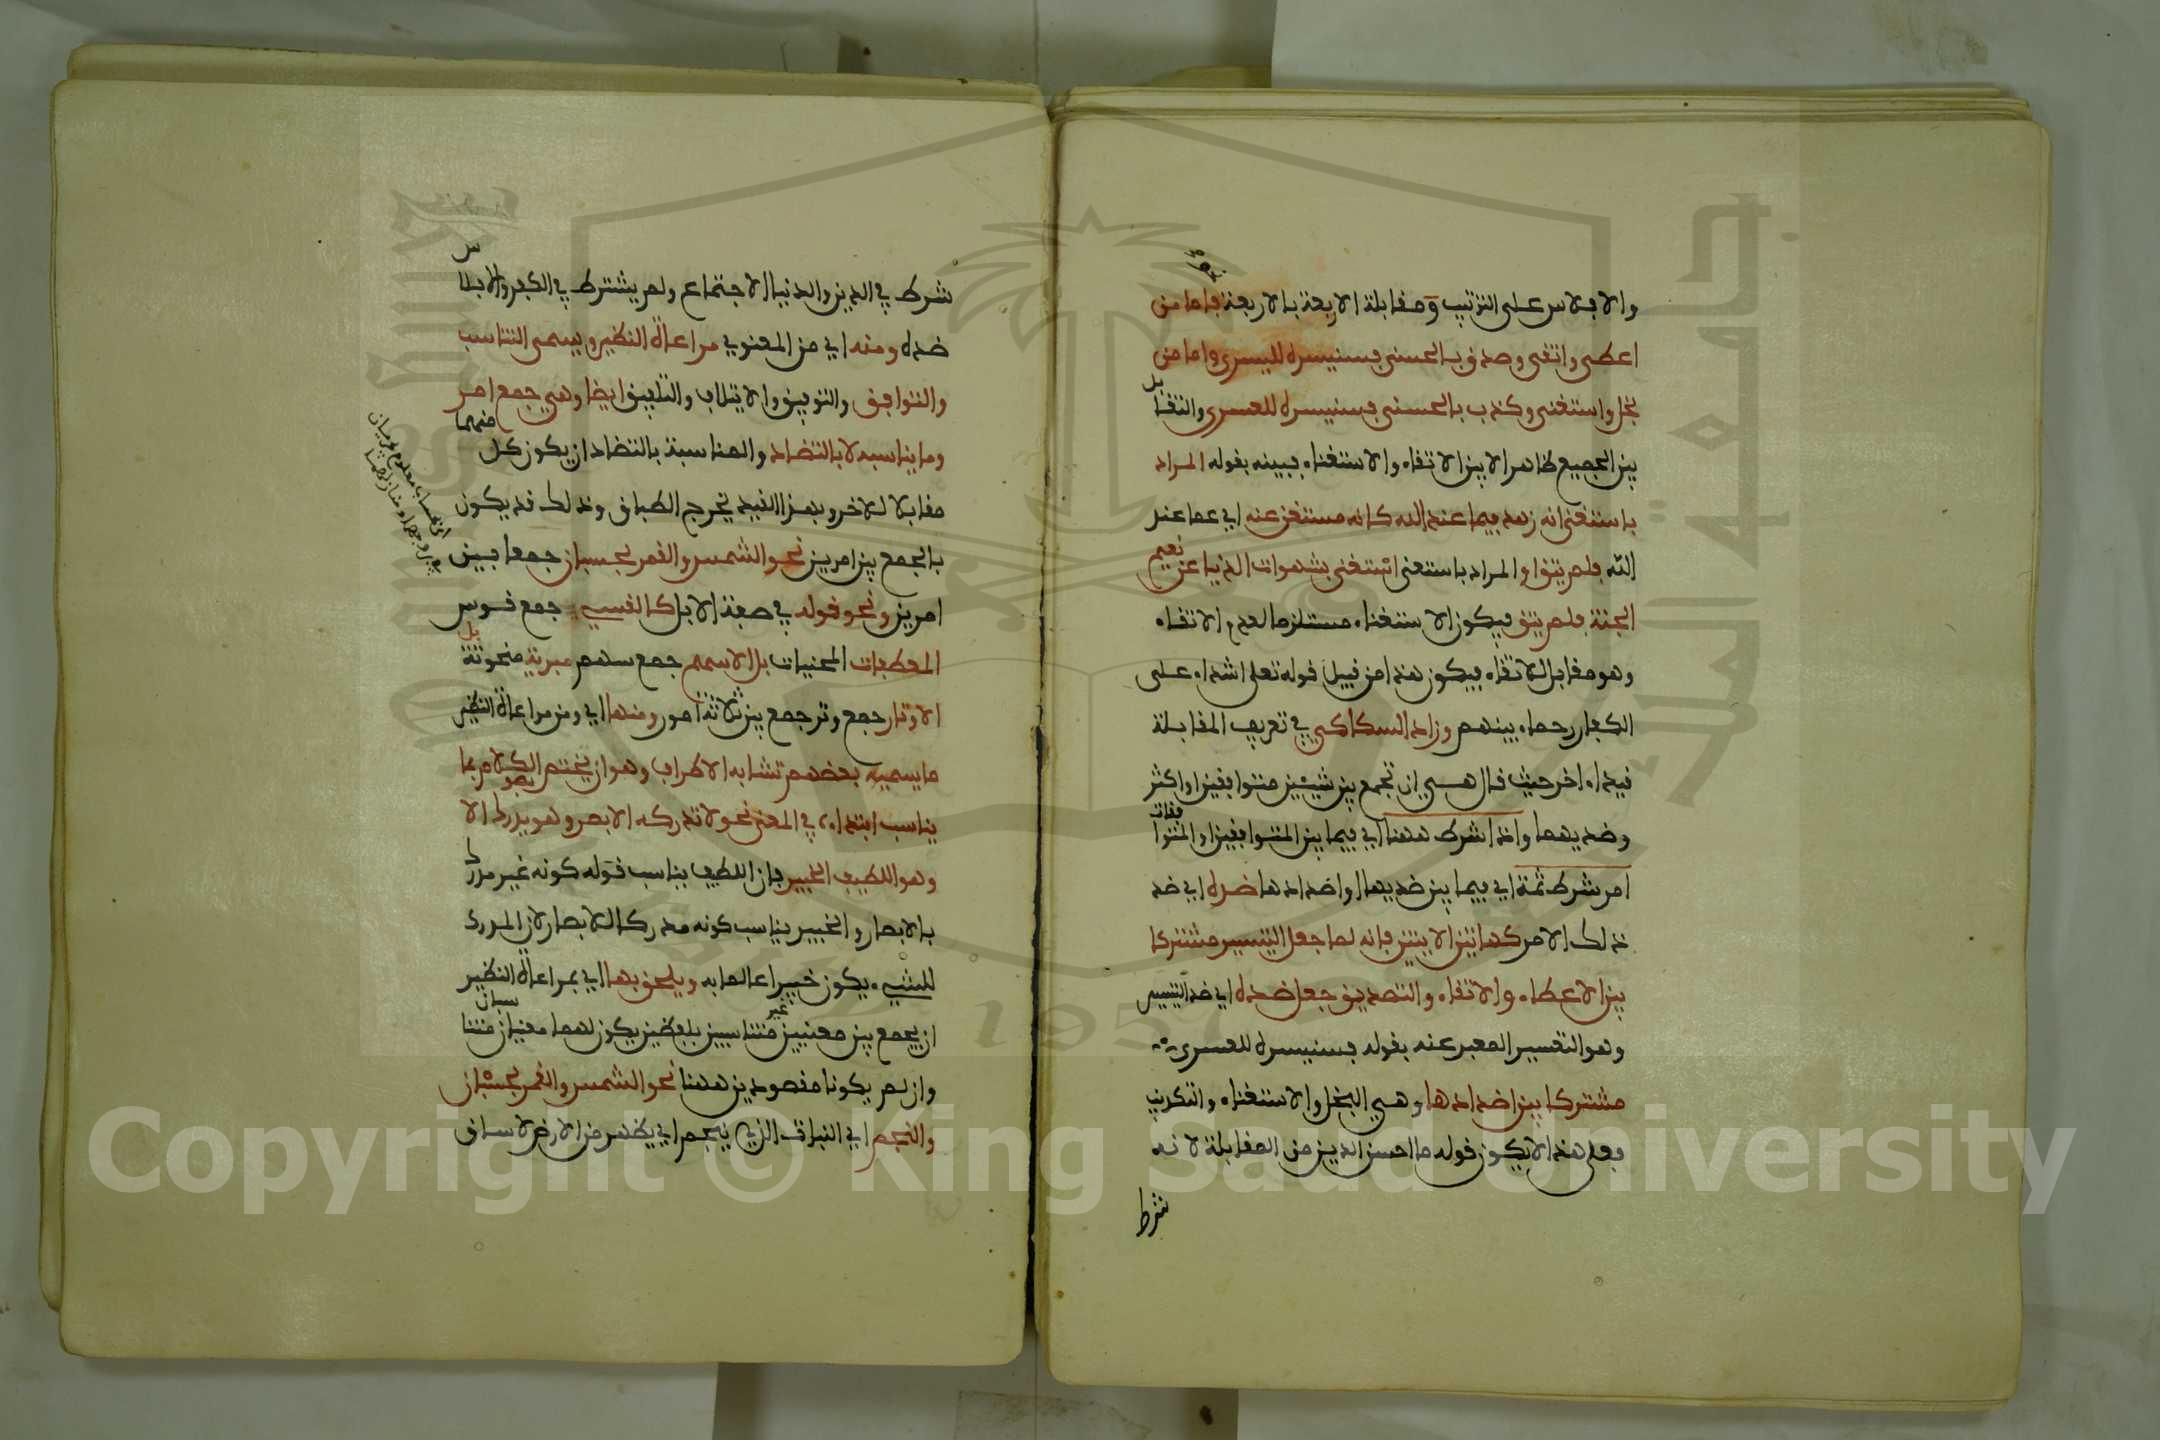 والافلاس على الترتيب ومقابلة الاربعة بالاربعة فاما من
اعطى واتقى وصدق بالحسنى فسنيسره لليسرى واما من
بخل واستغنى وكذب بالحسنى فسنيسره للعسرى والتقابل
بين الجميع ظاهر الا بين الاتقاء والاستغناء فبينه بقوله المراد
باستغنى انه زهد فيما عند الله كانه مستغن عنه اي عما عند
الله فلم يتق او المراد باستغنى استغنى بشهوات الدنيا عن نعيم
الجنة فلم يتق فيكون الاستغناء مستلزما لعدم الاتقاء
وهو مقابل للاتقاء فيكون هذا من قبيل قوله تعلى اشداء على
الكفار رحماء بينهم وزاد السكاكي في تعريف المقابلة
قيدا اخر حيث قال هي ان تجمع بين شيئين متوافقين او اكثر
وضديهما واذا شرط ههنا اي فيما بين المتوافقين او المتوافقات
امر شرط ثمة اي فيما بين ضديهما او اضدادها ضده اي ضد
ذلك الامر كهاتين الايتين فانه لما جعل التيسير مشتركا
بين الاعطاء والاتقاء والتصديق جعل ضده اي ضد التيسير
وهو التعسير المعبر عنه بقوله فسنيسره للعسرى
مشتركا بين اضدادها وهي البخل والاستغناء والتكذيب
فعلى هذا لا يكون قوله ما احسن الدين من المقابلة لانه
شرط
شرط في الدين والدنيا الاجتماع ولم يشترط في الكفر والافلاس
ضده ومنه اي من المعنوي مراعاة النظير ويسمى التناسب
والتوافق والتوفيق والايتلاف والتلفيق ايضا وهي جمع امر
وما يناسبه لا بالتضاد والمناسبة بالتضاد ان يكون كل منهما
مقابلا للاخر وبهذا القيد يخرج الطباق وذلك قد يكون
بالجمع بين امرين نحو الشمس والقمر بحسبان جمعا بين
امرين ونحو قوله في صفة الابل كالقسي جمع قوس
المعطفات المحنيات بل الاسهم جمع سهم مبرية منحوتة بل
الاوتار جمع وتر جمع بين ثلاثة امور ومنها اي ومن مراعاة النظير
ما يسميه بعضهم تشابه الاطراف وهو ان يختم الكلام بما
يناسب ابتداءه في المعنى نحو لا تدركه الابصر وهو يدرك الابصر
وهو اللطيف الخبير فان اللطيف يناسب قوله كونه غير مدرك
بالابصار والخبير يناسب كونه مدركا للابصار لان المدرك
للشيء يكون خبيرا عالما به ويلحق بها اي بمراعاة النظير
ان يجمع بين معنيين غير متناسبين بلفظين يكون لهما معنيان متناسبان
وان لم يكونا مقصودين ههنا نحو الشمس والقمر بحسبان
والنجم اي النبات الذي ينجم اي يظهر من الارض لا ساق